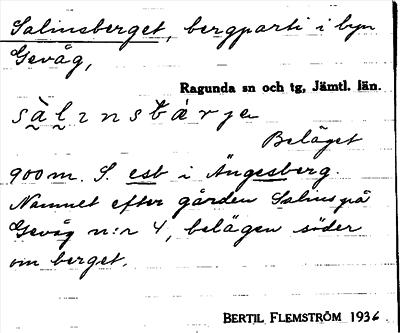 Salinsberget, bergparti i byn
Gevåg,
Ragunda sn och tg, Jämtl. län.
Beläget
900 m. S. esb i Ängesberg.
Namnet efter gården Salins på
Gevåg n:r 4, belägen söder
om berget.
BERTIL FLEMSTRÖM 1936